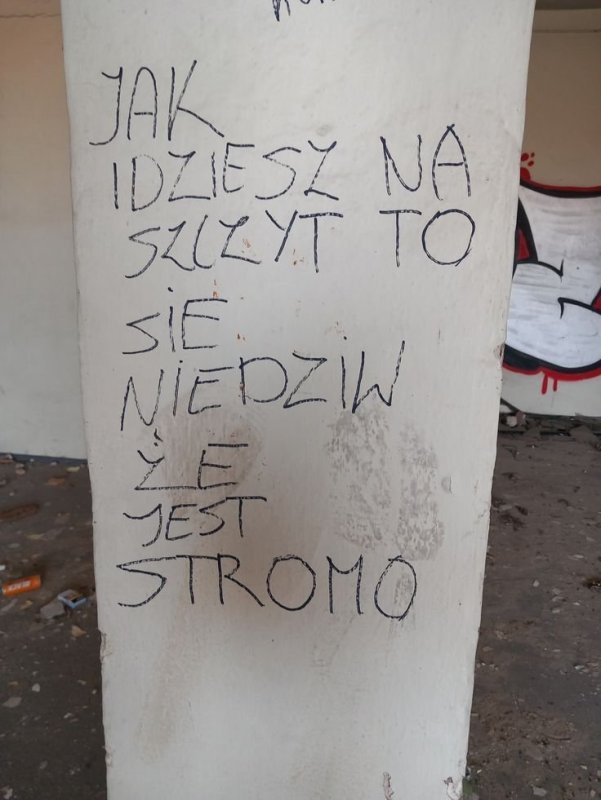 JAK
IDZIESZ NA
SZCZYT TO
SIE
NIEDZIW
ŻE
JEST
STROMO